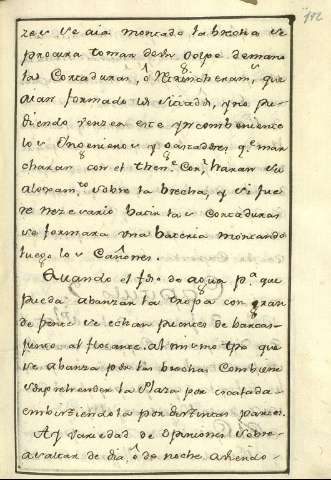 182
zer se aia montado la brecha se
procura tomar de un golpe de mano
las Cortaduras, ô Atrincheram.s que
aian formado los sitiados, y no pu-
diendo venzer este ynconbeniente
los Yngenieros y gastadores q.e mar
charan con el then.te Cor.l haran su
aloxam.to sobre la brecha, y si fue
re nezesario batir las Cortaduras
se formara una bateria montando
luego los Cañones.
Quando el foso de agua p.a que
pueda abanzar la tropa con gran
de frente se echan puentes de barcas
junto al flocante al mismo tpo que
se abanza por las brechas Combiene
sorpreender la Plaza por escalada
embistiendola por distintas partes.
Ay variedad de Opiniones sobre
asaltar de dia, ô de noche